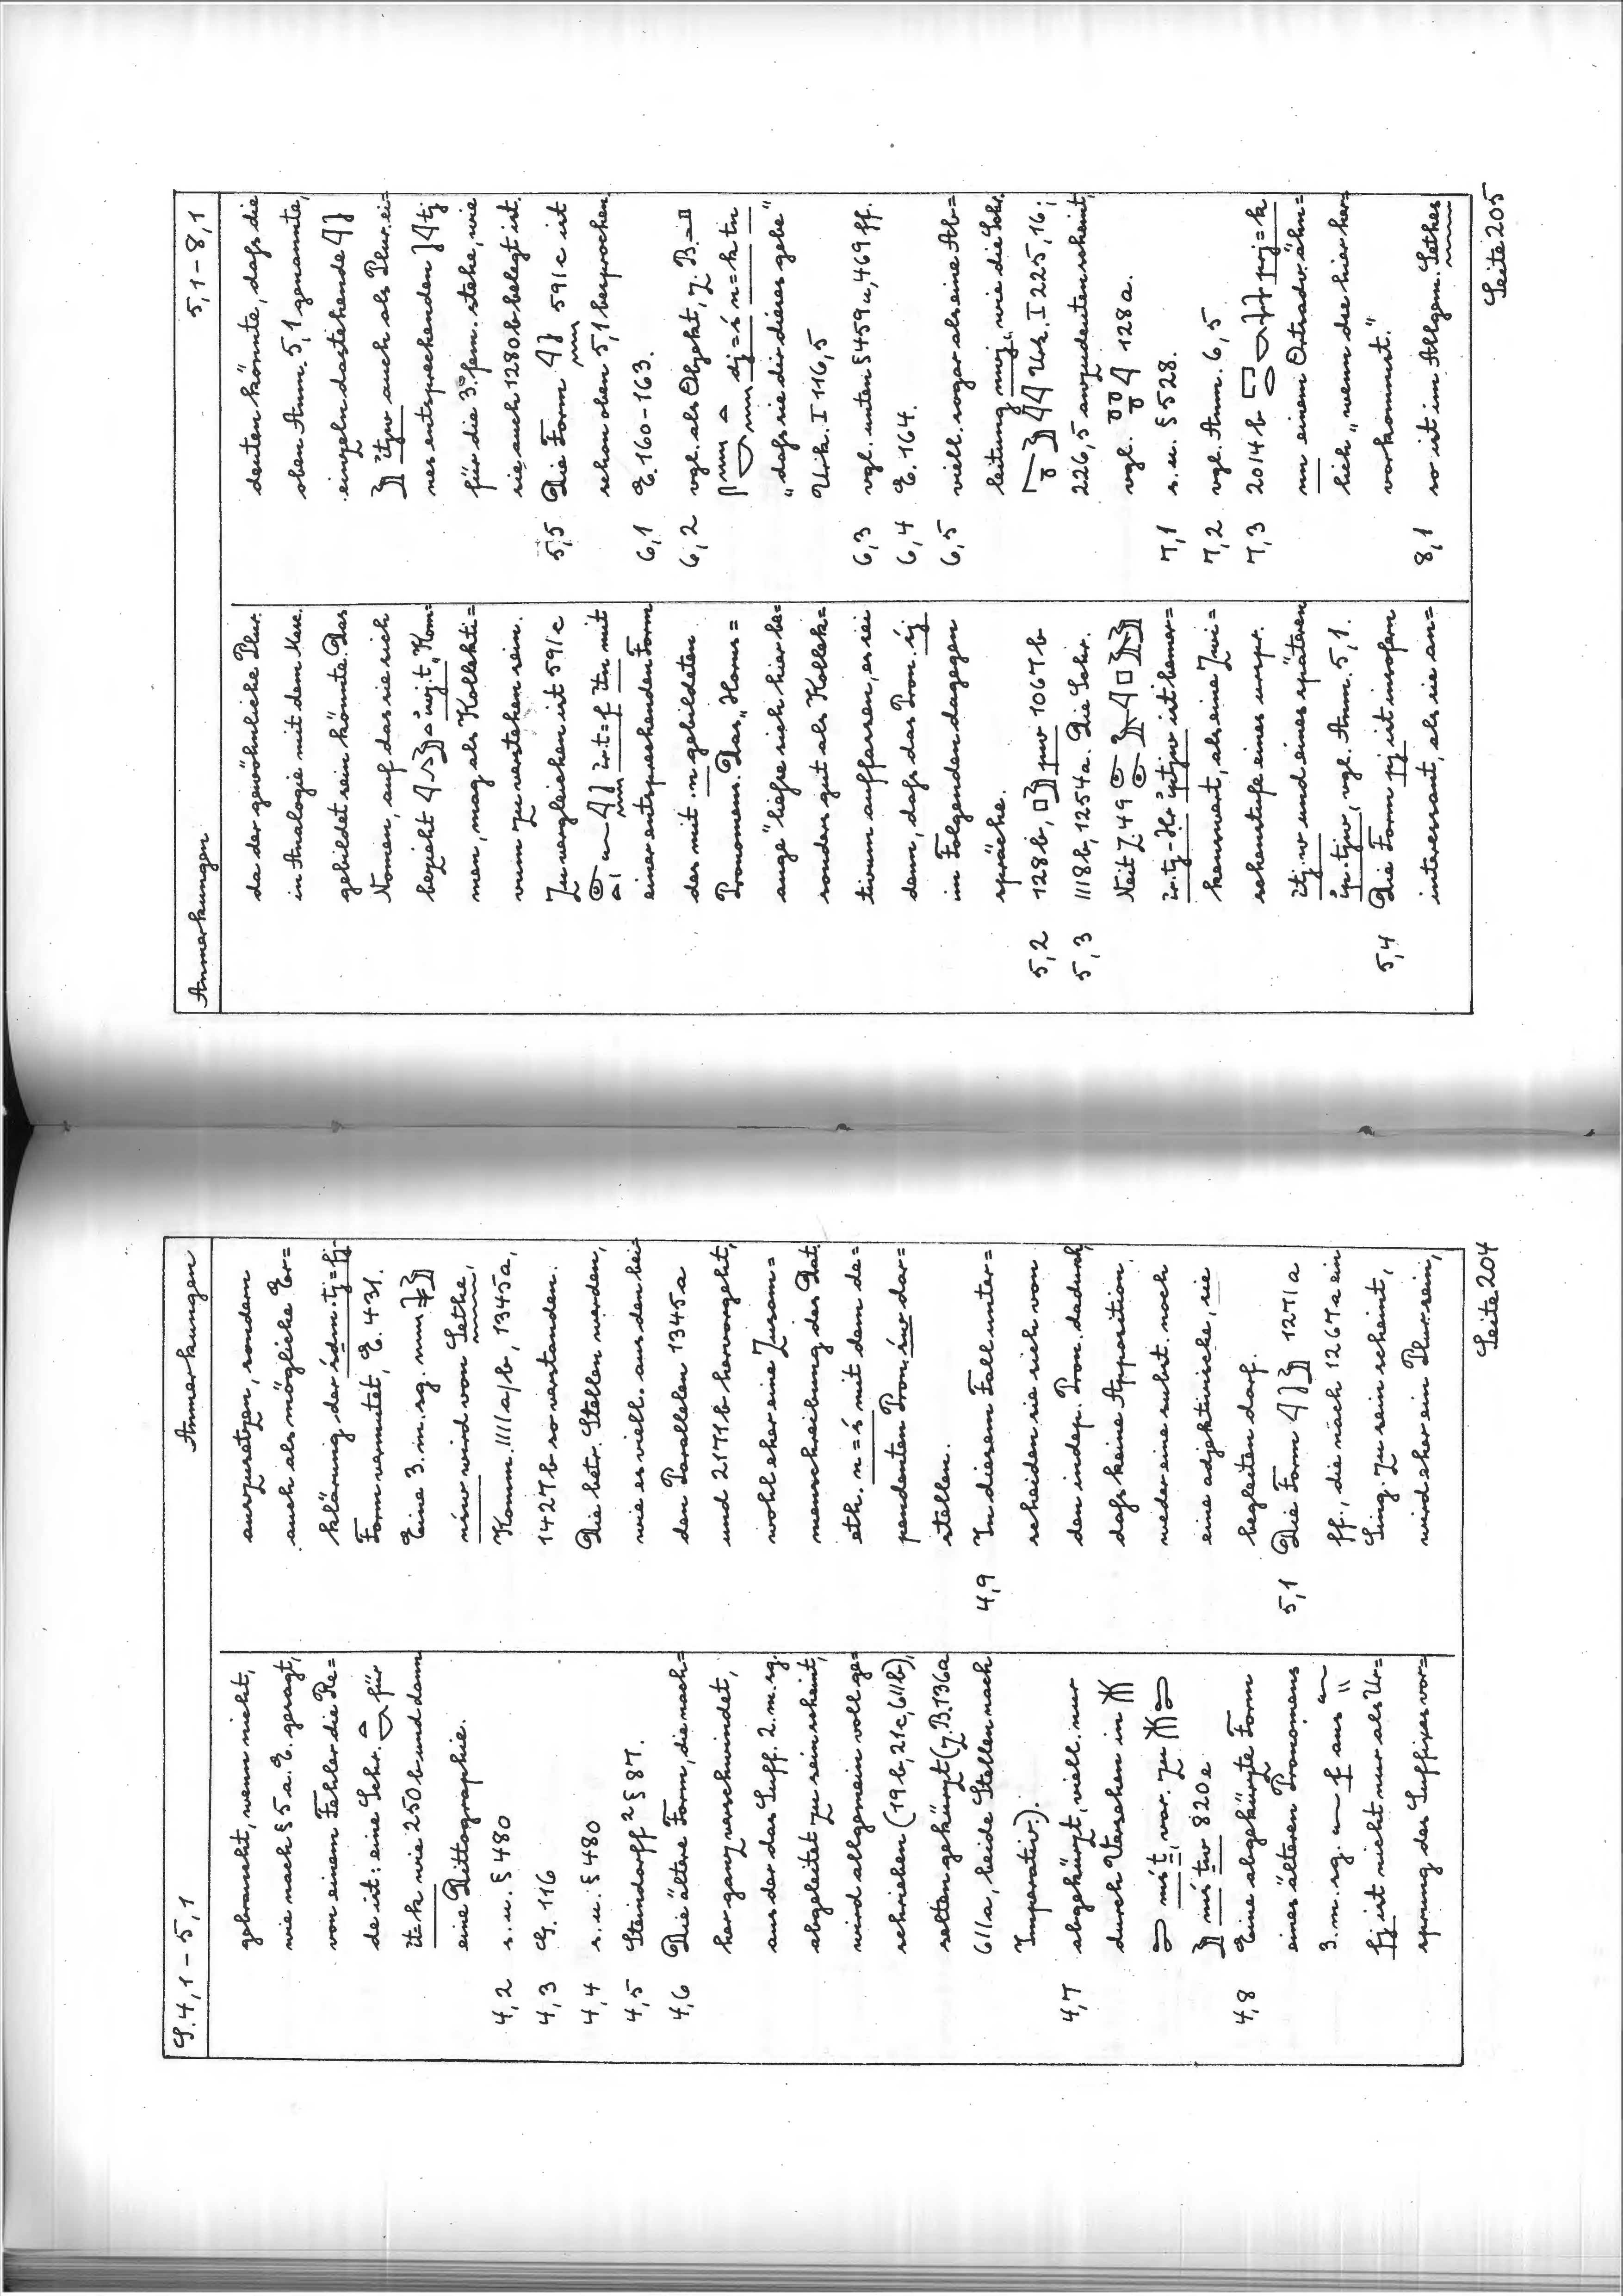 S. 4,1 - 5,1
Anmerkungen
gebraucht, wenn nicht,
wie nach § 5 a. E. gesagt,
von einem Fehler die Re=
de ist: eine Schr. für
ṯt=k wie 250b und dann
eine Dittographie.
4,2 s. u. § 480
4,3 G. 116
4,4 s. u. § 480
4,5 Steindorff² § 87.
4,6 Die ältere Form, die nach=
her ganz verschwindet,
aus der das Suff. 2. m. sg.
abgeleitet zu sein scheint,
wird allgemein voll ge=
schrieben (19b, 21c, 611b),
selten gekürzt (z. B. 136a
611a, beide Stellen nach
Imperativ.).
4,7 abgekürzt, viell. nur
durch Versehen in
mś·ṯ, var. zu
mś·ṯw 820e
4,8 Eine abgekürzte Form
eines älteren Pronomens
3. m. sg. f aus
fj ist nicht nur als Ur=
sprung des Suffixes vor=
auszusetzen, sondern
auch als mögliche Er=
klärung der śḏm.tj=fj-
Form vermutet, E. 431.
Eine 3. m. sg.
nśw wird von Sethe,
Komm. 1111a/b, 1345a,
1427b so verstanden.
Die betr. Stellen werden,
wie es viell. aus den bei=
den Parallelen 1345a
und 2171b hervorgeht,
wohl eher eine Zusam=
menschreibung des Dat.
eth. n=ś mit dem de=
pendenten Pron. św dar=
stellen.
4,9 In diesem Fall unter=
scheiden sie sich von
den indep. Pron. dadurch,
daß keine Apposition,
weder eine subst. noch
eine adjektivische, sie
begleiten darf.
5,1 Die Form 1271a
ff., die nach 1267a ein
Sing. zu sein scheint,
wird eher ein Plur. sein,
Seite 204
Anmerkungen
5,1 - 8,1
da der gewöhnliche Plur.
in Analogie mit dem Mask.
gebildet sein könnte. Das
Nomen, auf das sie sich
bezieht iwj.t, Kom=
men, mag als Kollekti=
vum zu verstehen sein.
Zu vergleichen ist 591c
ir.t=f ṯtn mit
einer entsprechenden Form
des mit n gebildeten
Pronomens. Das „Horus=
auge" ließe sich hier be=
sonders gut als Kollek=
tivum auffassen, es sei
denn, daß das Pron. śj
im Folgenden dagegen
spräche.
5,2 128b, pw 1067b
5,3 1118b, 1254a. Die Schr.
Neit Z. 49
ir.tj-Ḥr iptjw ist bemer=
kenswert, als eine Zwi=
schenstufe eines urspr.
iṯj.w und eines späteren
ip.tjw, vgl. Anm. 5,1.
5,4 Die Form pj ist insofern
interessant, als sie an=
deuten könnte, daß die
oben Anm. 5,1 genannte,
einzeln dastehende
iṯjw auch als Plur. ei=
nes entsprechenden tj
für die 3. fem. stehe, wie
sie auch 1280b belegt ist.
5,5 Die Form 591c ist
schon oben 5,1 besprochen
6,1 E. 160-163.
6,2 vgl. als Objekt, z. B.
dj=ś n=k tn
„daß sie dir dieses gebe"
Urk. I 116,5
6,3 vgl. unten § 459 u, 469 ff.
6,4 E. 164.
6,5 viell. sogar als eine Ab=
leitung nwj, wie die Schr.
Urk. I 225,16;
226,5 anzudeuten scheint,
vgl. 128a.
7,1 s. u. § 528.
7,2 vgl. Anm. 6,5
7,3 2014b prj=k
m einem Ortsadv. ähn=
lich „wenn du hier her=
vorkommst."
8,1 so ist im Allgem. Sethes
Seite 205